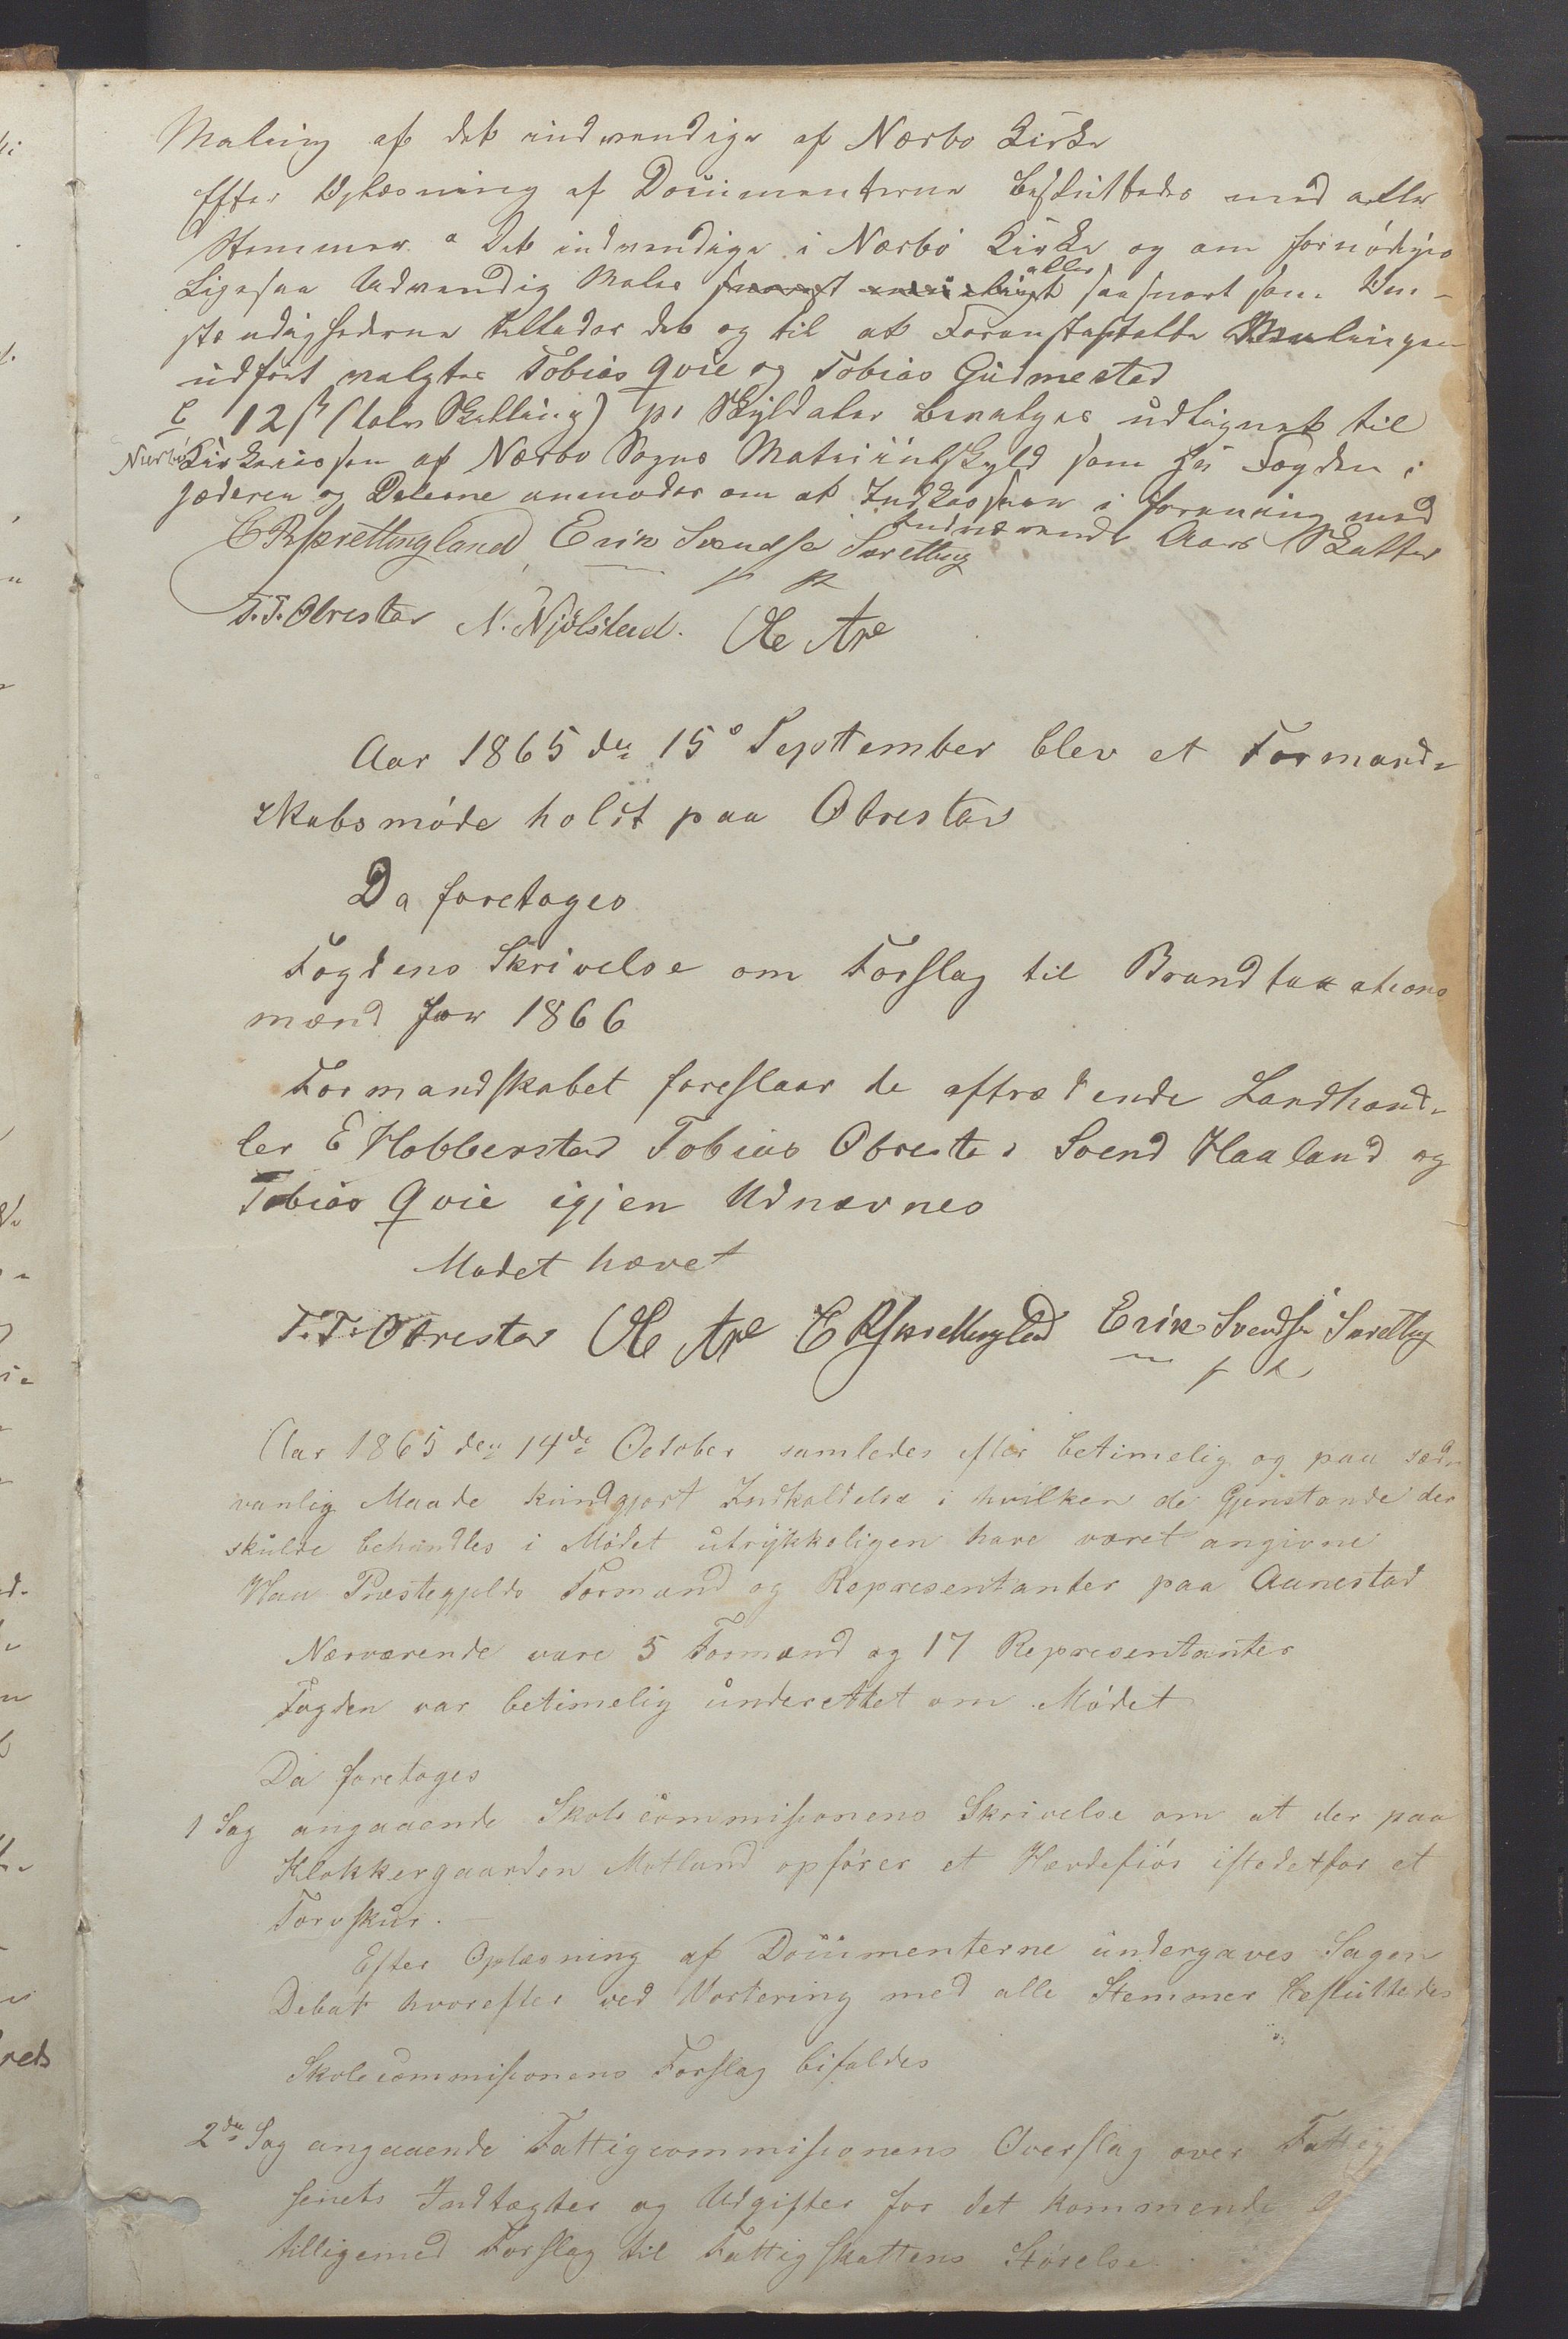 Maling af det indvendige af Nærbo Kirke
Efter Oplæsning af Documenterne besluttedes med alle
Stemmer a Det indvendige i Nærbö Kirke og om fornödiges
Ligesaa Udvendig Males snarest mueligst eller saa snart som Um-
stændighederne tillader det og til at Foranstaltte Malingen
udfört valgtes Tobias Qvie og Tobias Gudmestad
b 12 ß (tolv Skilling) pr Skylddaler bevalges udlignet til
Nærbö Kirkecassen af Nærbo Sogns Matriculskyld som Hr Fogden i
Jæderen og Dalerne anmodes om at Indkassere i forening med
Indeværende Aars Skatter
E R Sprettingland, Erik Svendse Særetting
T. T. Obrestad N. Njölstad. Ole Ape
Aar 1865 den 15de September blev et Formand-
skabsmöde holdt paa Obrestad
Da foretoges
Fogdens Skrivelse om Forslag til Brandtaxations
mænd for 1866
Formandskabet foreslaar de aftrædende Landhand-
ler E Hobberstad Tobias Obrestad Svend Haaland og
Tobias Qvie igjen Udnævnes
Modet hævet
T. T. Obrestad Ole Ape E R Sprettingland Erik Svendse Særetting
Aar 1865 den 14de October samledes efter betimelig og paa sæd-
vanlig Maade kundgjort Indkaldelse i hvilken de Gjenstande der
skulde behandles i Mödet utrykkeligen have været angivne
Haa Præstegjelds Formænd og Representanter paa Aanestad
Nærværende vare 5 Formænd og 17 Representanter
Fogden var betimelig underettet om Mödet
Da foretoges
1 Sag angaaende Skolecommisionens Skrivelse om at der paa
Klokkergaarden Motland opförer et Hævdefiös istedetfor et
Torvskur.
Efter Oplæsning af Documenterne undergaves Sagen
Debat hvorefter ved Vortering med alle Stemmer besluttedes
Skolecommisionens Forslag bifaldes
2den Sag angaaende Fattigcommisionens Overslag over Fattig
senets Indtægter og Udgifter for det kommende
tilligemed Forslag til Fattigskattens Störelse.